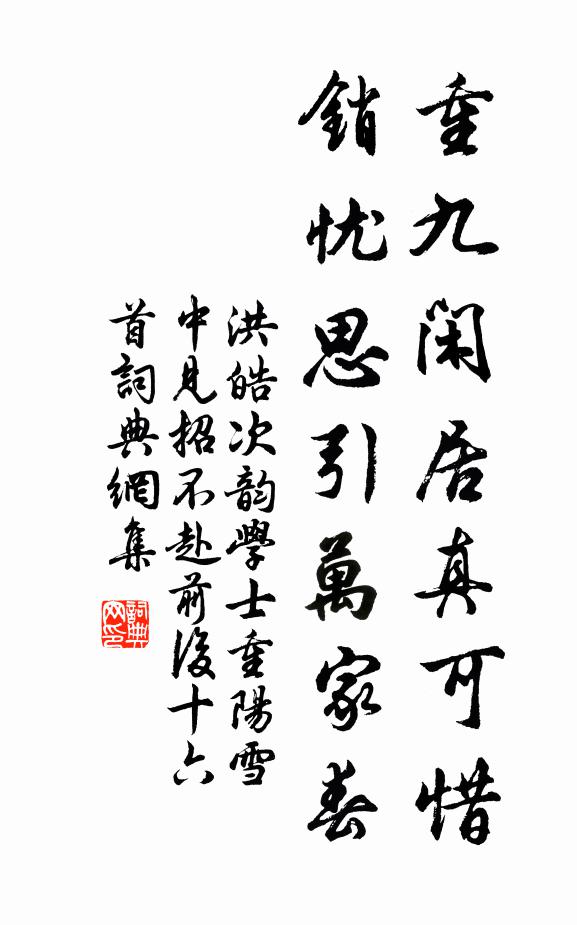 重九闲居真可惜
銷忧思引萬家春
洪皓次韵學士重陽雪
中見招不赴前後十六
首詞典網集
詞典
网印